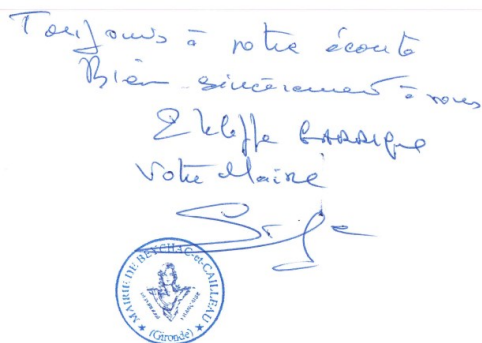 Toujours à votre écoute
Bien sincèrement à vous
Philippe GARRIGUE
Votre Maire
MAIRIE DE BEYCHAC-et-CAILLEAU
(Gironde)